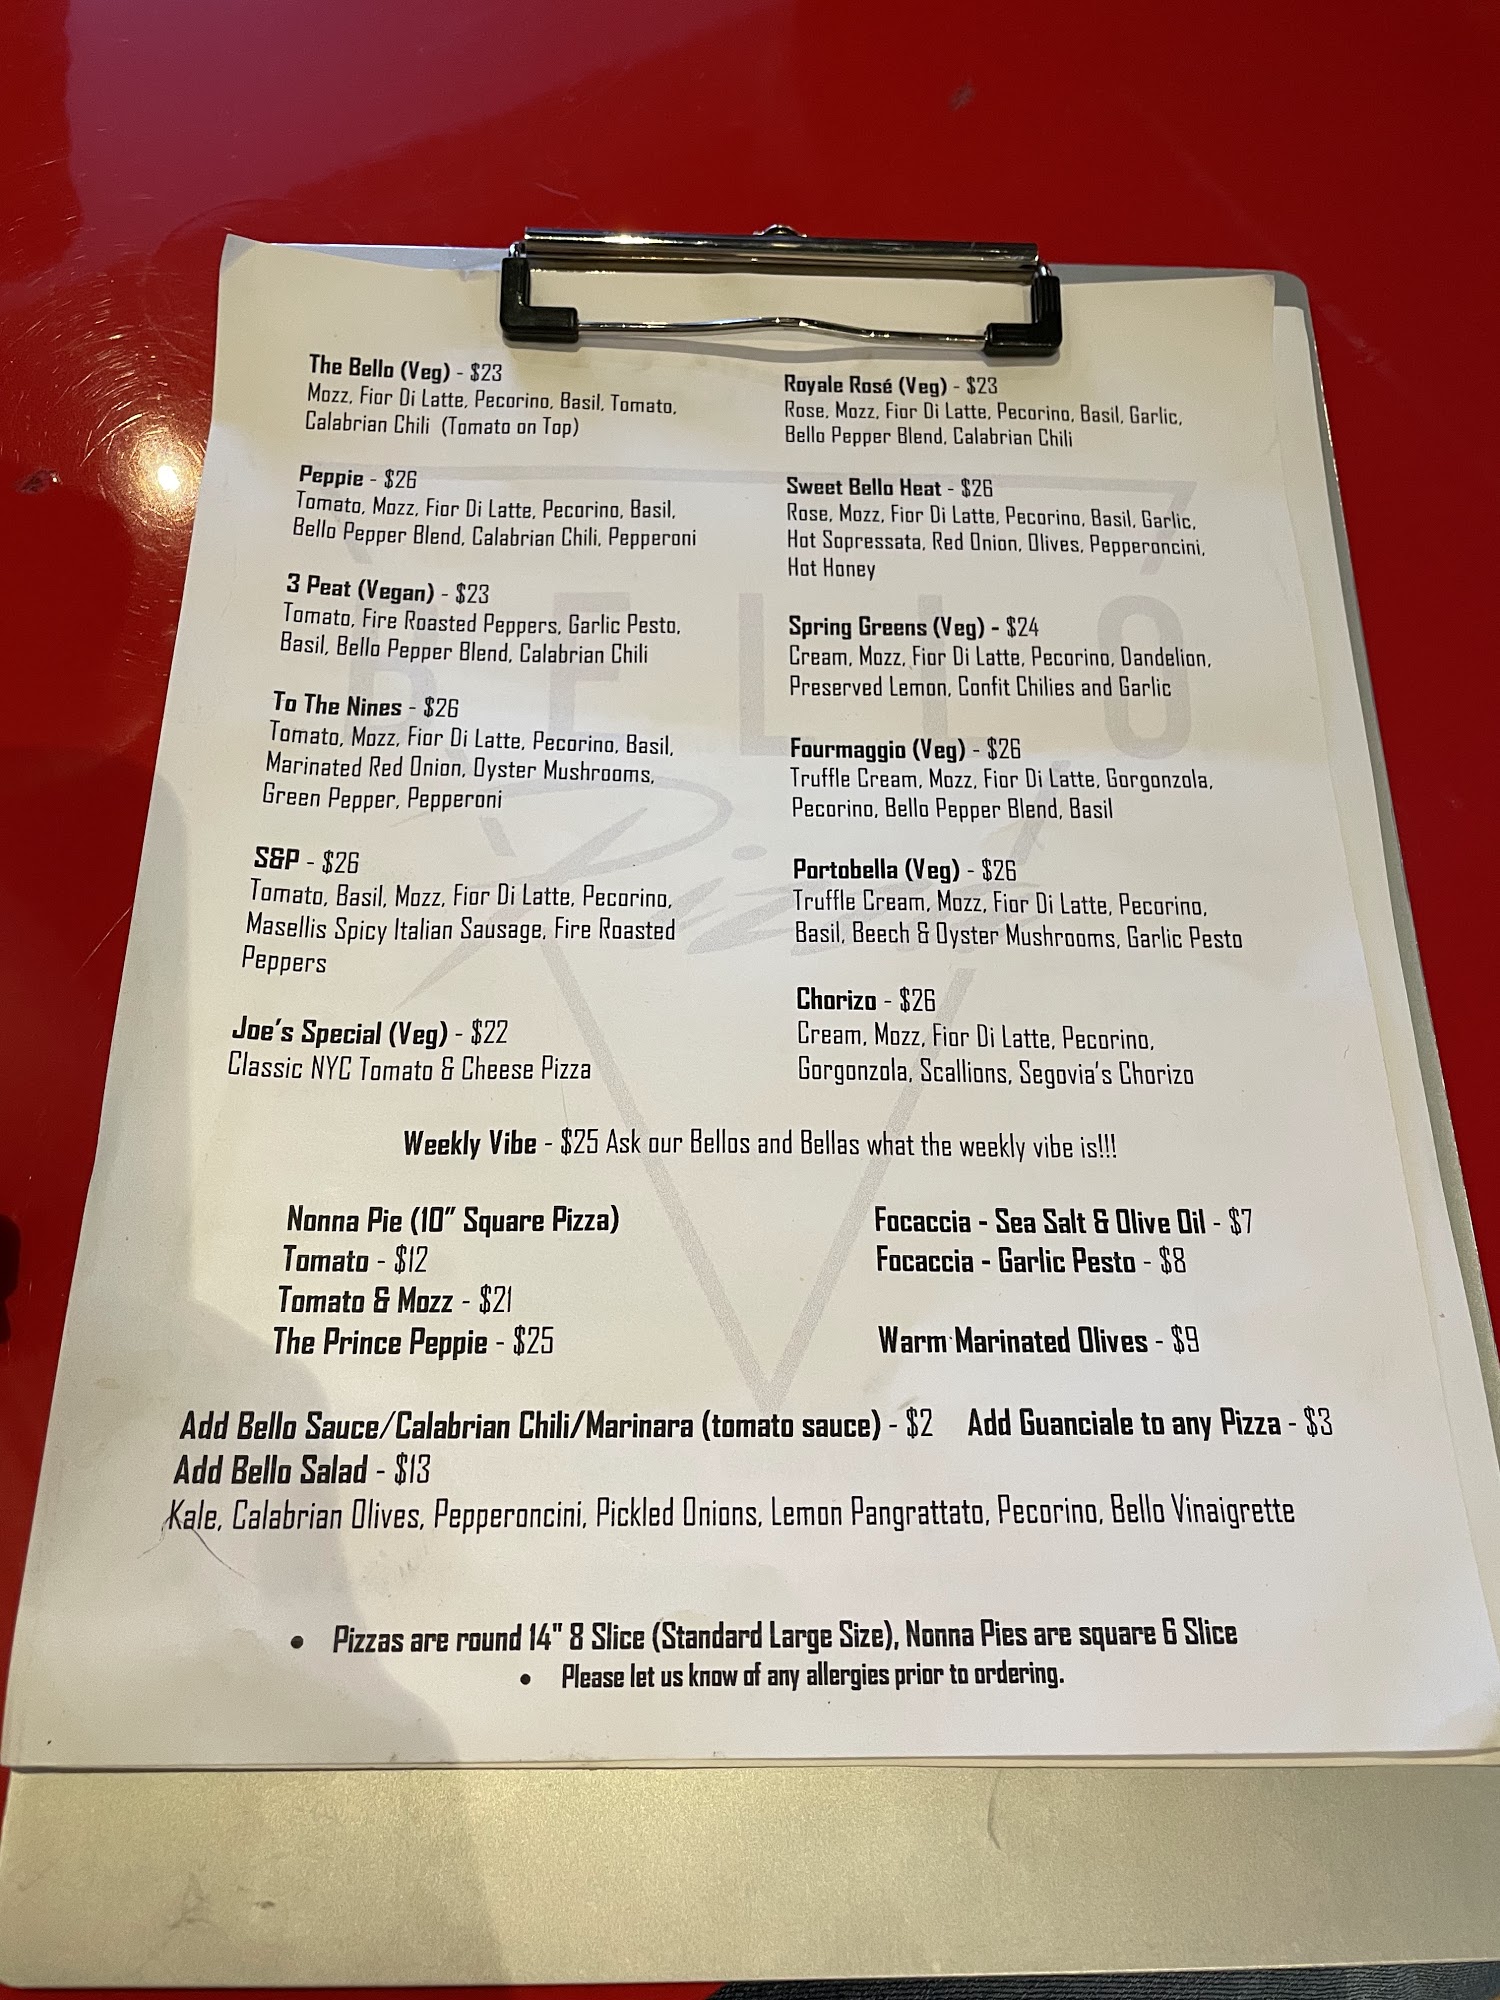 The Bello (Veg) - $23
Mozz, Fior Di Latte, Pecorino, Basil, Tomato,
Calabrian Chili (Tomato on Top)
Peppie - $26
Tomato, Mozz, Fior Di Latte, Pecorino, Basil,
Bello Pepper Blend, Calabrian Chili, Pepperoni
3 Peat (Vegan) - $23
Tomato, Fire Roasted Peppers, Garlic Pesto,
Basil, Bello Pepper Blend, Calabrian Chili
To The Nines - $26
Tomato, Mozz, Fior Di Latte, Pecorino, Basil,
Marinated Red Onion, Oyster Mushrooms,
Green Pepper, Pepperoni
S&P - $26
Tomato, Basil, Mozz, Fior Di Latte, Pecorino,
Masellis Spicy Italian Sausage, Fire Roasted
Peppers
Joe's Special (Veg) - $22
Classic NYC Tomato & Cheese Pizza
Royale Rosé (Veg) - $23
Rose, Mozz, Fior Di Latte, Pecorino, Basil, Garlic,
Bello Pepper Blend, Calabrian Chili
Sweet Bello Heat - $26
Rose, Mozz, Fior Di Latte, Pecorino, Basil, Garlic,
Hot Sopressata, Red Onion, Olives, Pepperoncini,
Hot Honey
Spring Greens (Veg) - $24
Cream, Mozz, Fior Di Latte, Pecorino, Dandelion,
Preserved Lemon, Confit Chilies and Garlic
Fourmaggio (Veg) - $26
Truffle Cream, Mozz, Fior Di Latte, Gorgonzola,
Pecorino, Bello Pepper Blend, Basil
Portobella (Veg) - $26
Truffle Cream, Mozz, Fior Di Latte, Pecorino,
Basil, Beech & Oyster Mushrooms, Garlic Pesto
Chorizo - $26
Cream, Mozz, Fior Di Latte, Pecorino,
Gorgonzola, Scallions, Segovia's Chorizo
BELLO
Pizza
Weekly Vibe - $25 Ask our Bellos and Bellas what the weekly vibe is!!!
Nonna Pie (10" Square Pizza)
Tomato - $12
Tomato & Mozz - $21
The Prince Peppie - $25
Focaccia - Sea Salt & Olive Oil - $7
Focaccia - Garlic Pesto - $8
Warm Marinated Olives - $9
Add Bello Sauce/Calabrian Chili/Marinara (tomato sauce) - $2 Add Guanciale to any Pizza - $3
Add Bello Salad - $13
Kale, Calabrian Olives, Pepperoncini, Pickled Onions, Lemon Pangrattato, Pecorino, Bello Vinaigrette
• Pizzas are round 14" 8 Slice (Standard Large Size), Nonna Pies are square 6 Slice
• Please let us know of any allergies prior to ordering.